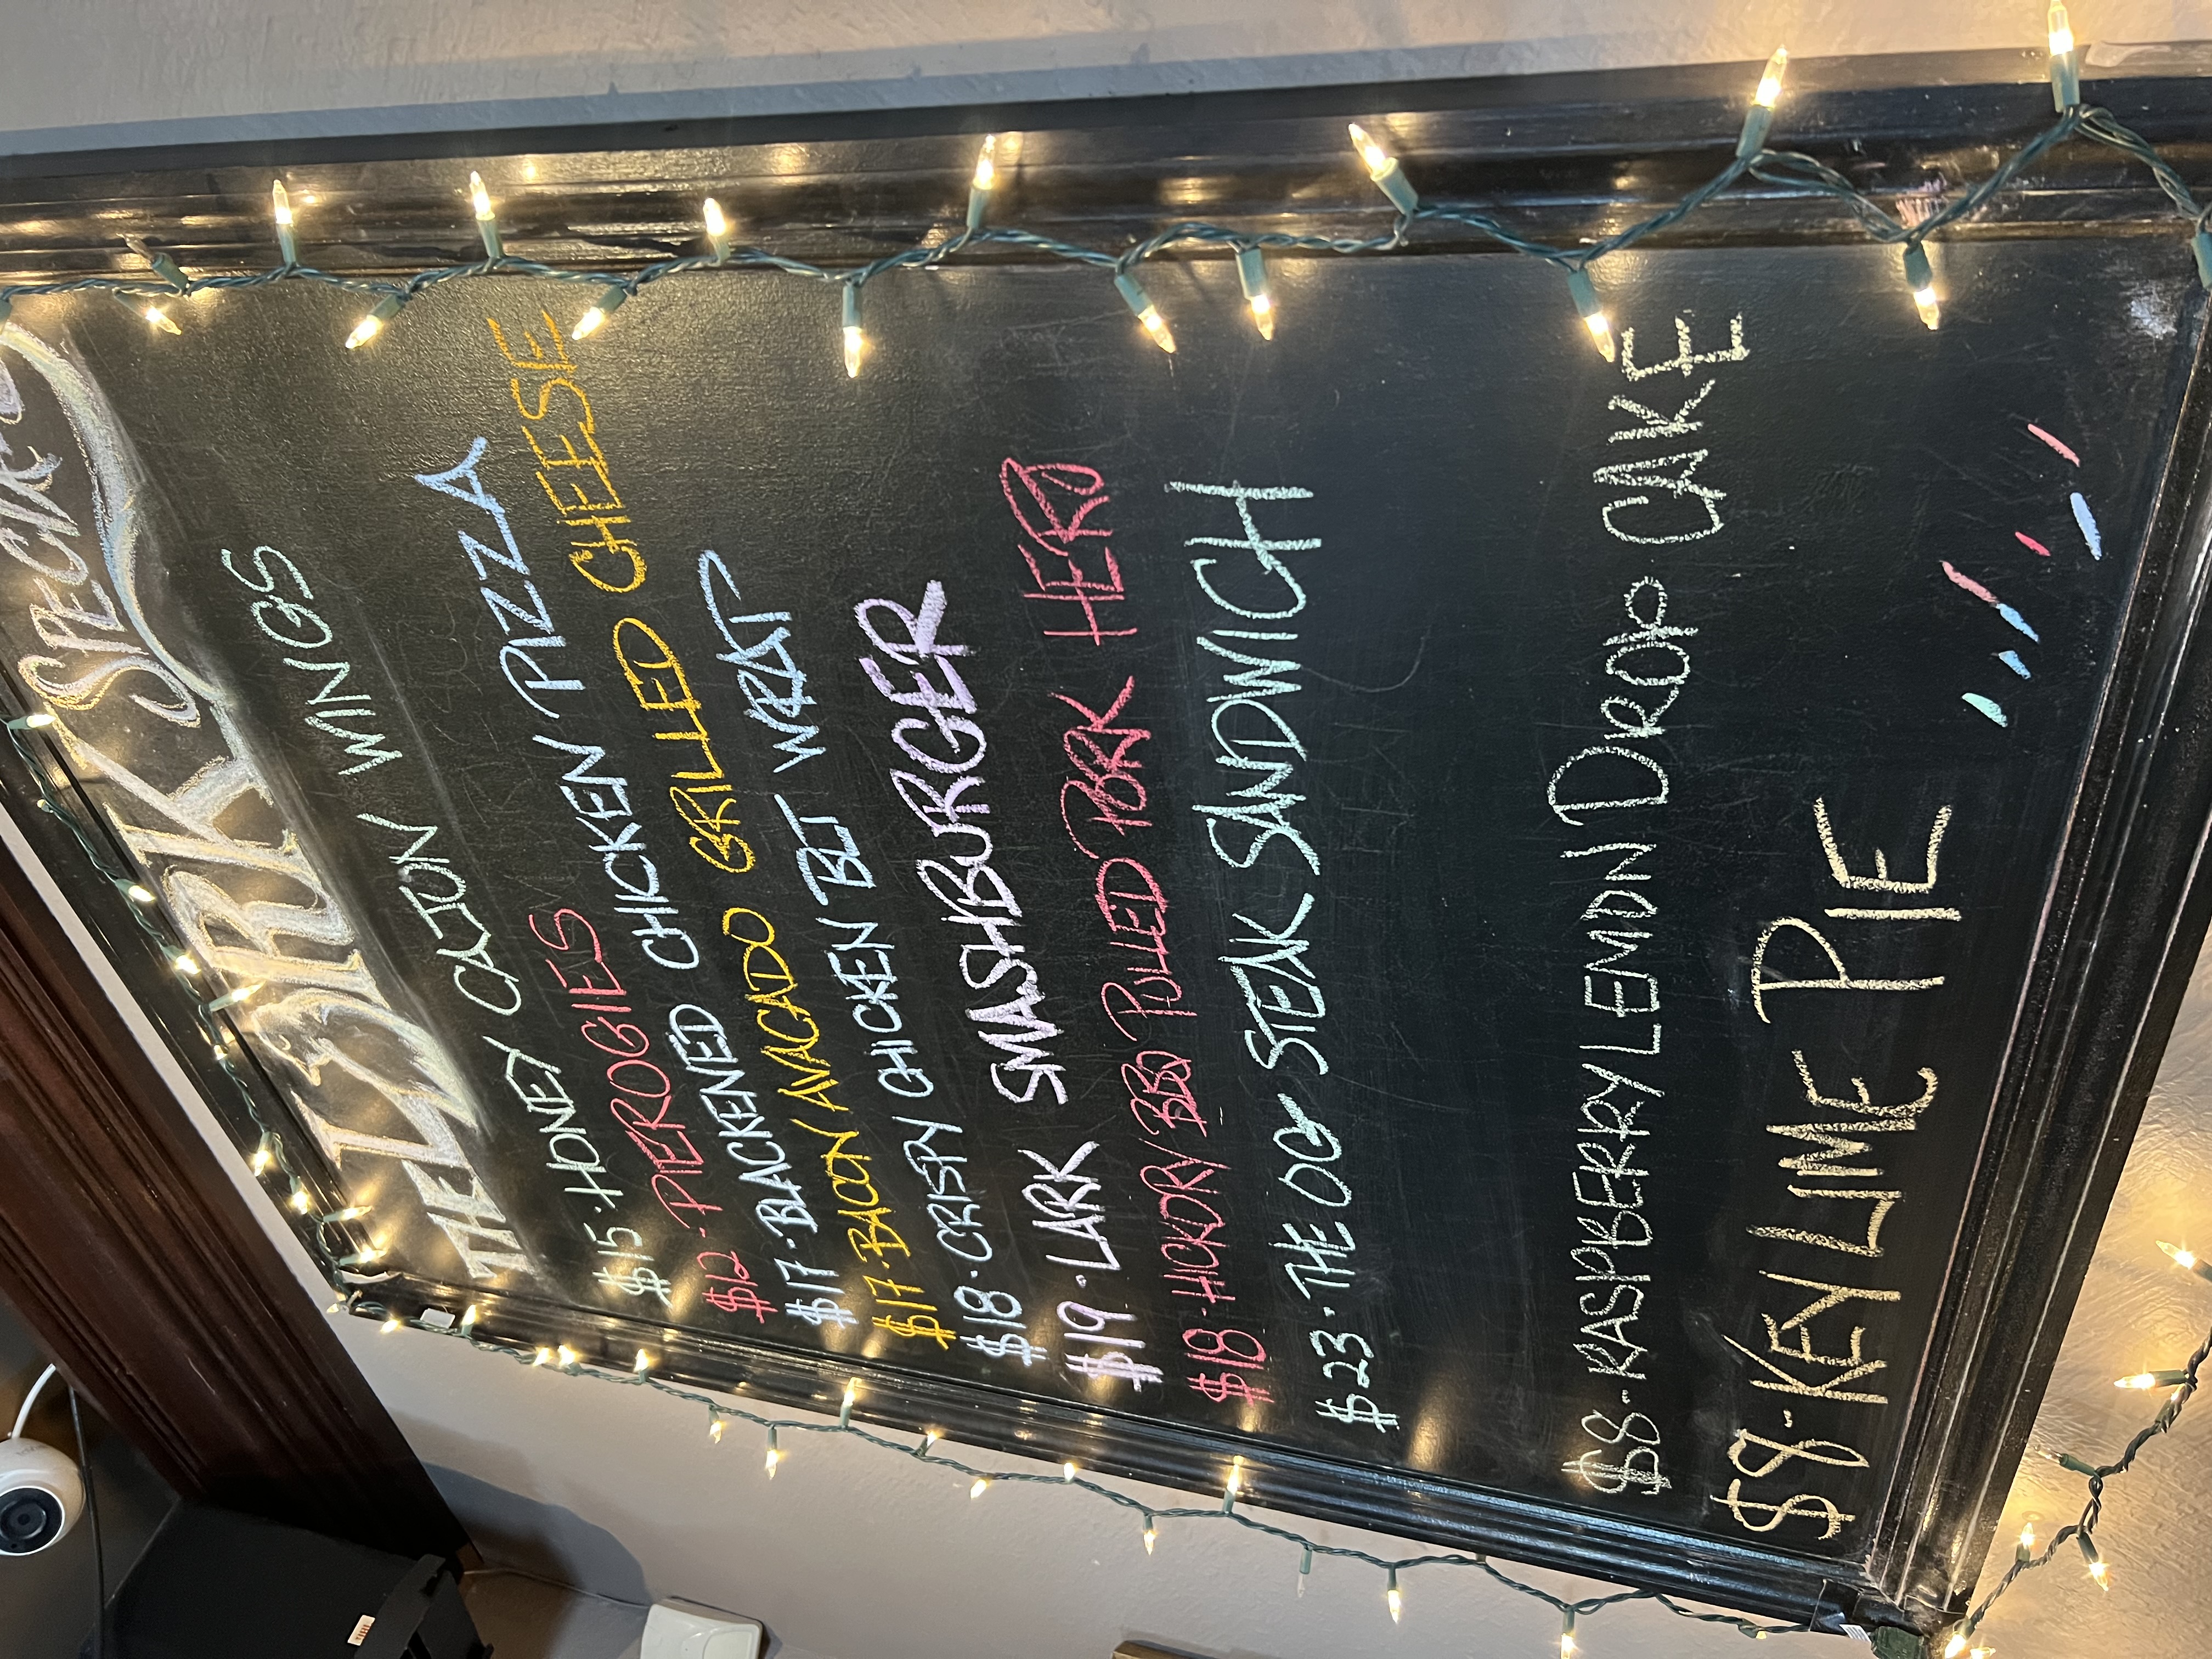 THE LARK SPECIALS
$15 · HONEY CAJUN WINGS
$12 · PIEROGIES
$17 · BLACKENED CHICKEN PIZZA
$17 · BACON AVACADO GRILLED CHEESE
$18 · CRISPY CHICKEN BLT WRAP
$19 · LARK SMASHBURGER
$18 · HICKORY BBQ PULLED PORK HERO
$23 · THE OG STEAK SANDWICH
$8 - RASPBERRY LEMON DROP CAKE
$8 - KEY LIME PIE